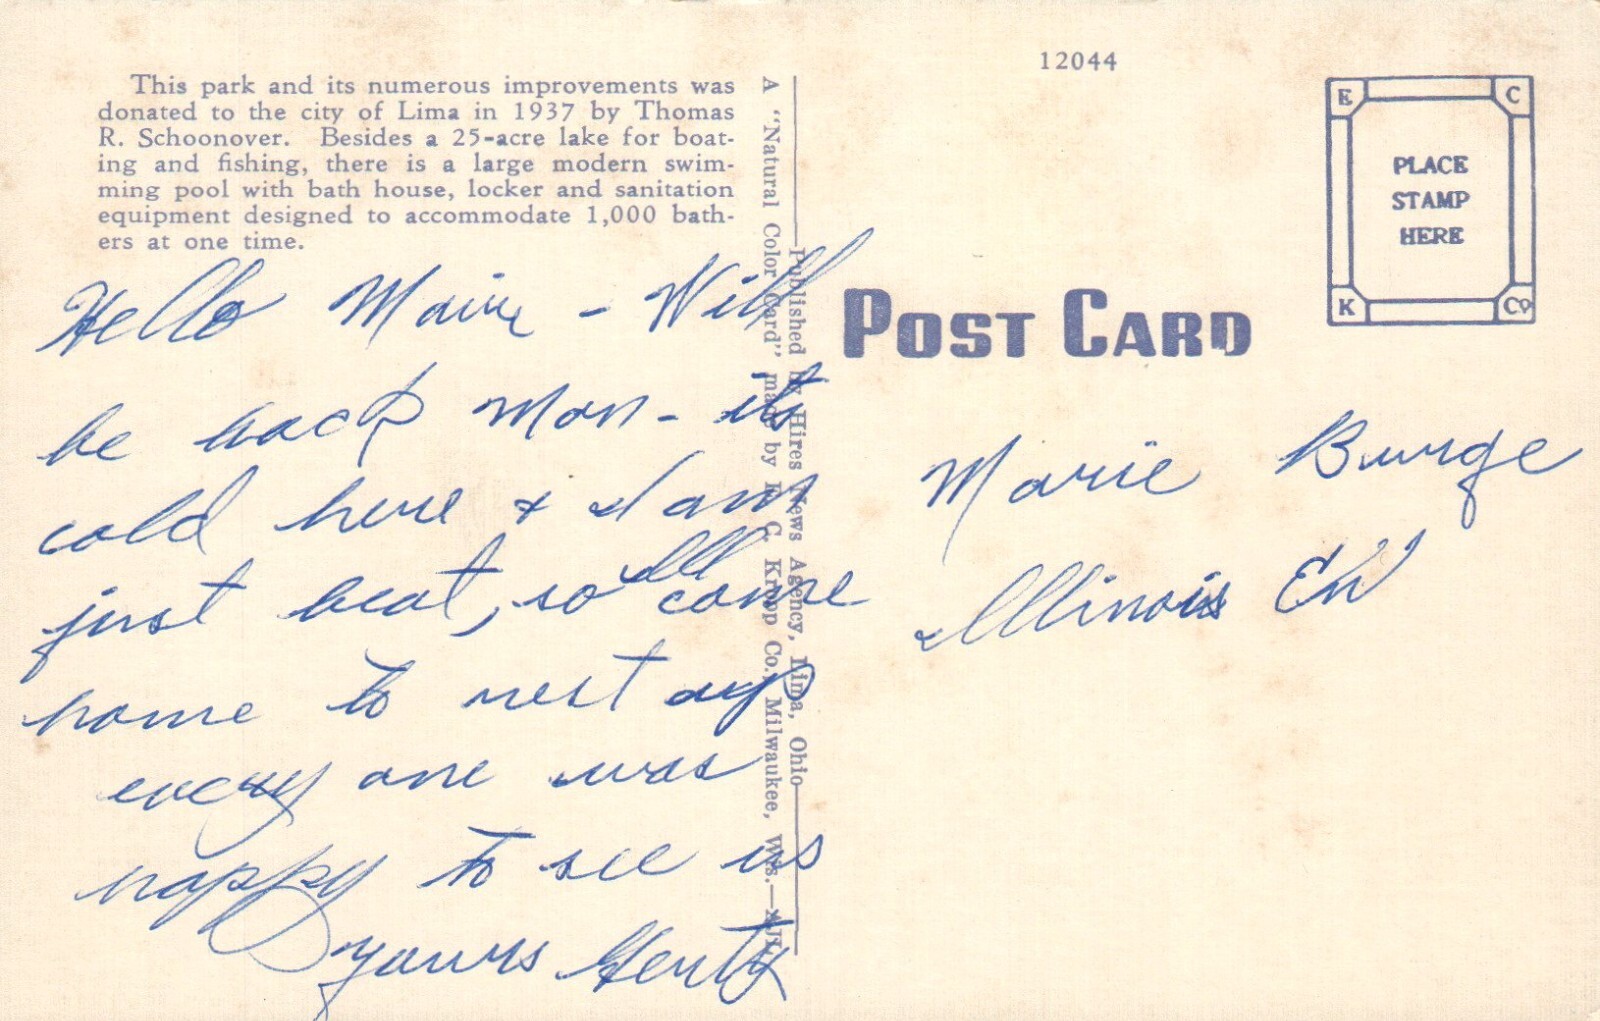 This park and its numerous improvements was
donated to the city of Lima in 1937 by Thomas
R. Schoonover. Besides a 25-acre lake for boat-
ing and fishing, there is a large modern swim-
ming pool with bath house, locker and sanitation
equipment designed to accommodate 1,000 bath-
ers at one time.
Hello Marie - Will
be back Mon - its
cold here & I am
just beat, so I'll come
home to rest up
every one was
happy to see us
yours
A "Natural Color Card" made by E. C. Kropp Co., Milwaukee, Wis.
Published by Hires News Agency, Lima, Ohio
12044
E C
PLACE
STAMP
HERE
K Co
POST CARD
Marie Burge
Illinois